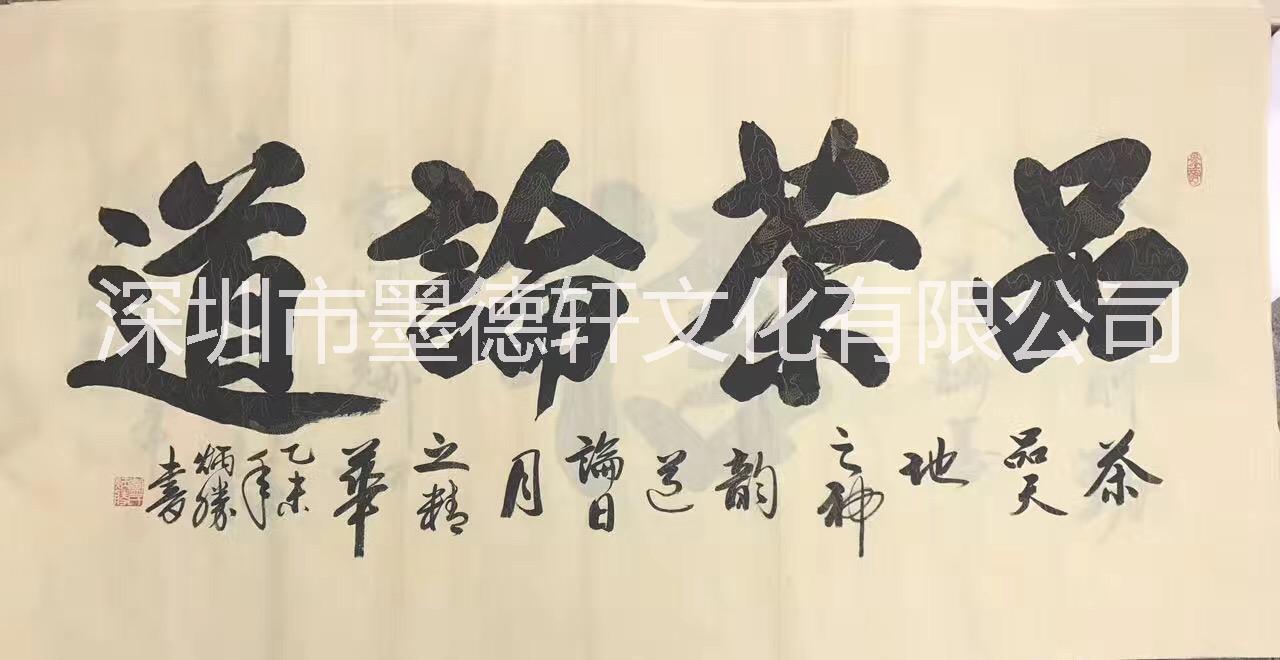 品茶論道
茶品天地之神韵道論日月之精華
乙未年炳勝書
深圳市墨德轩文化有限公司